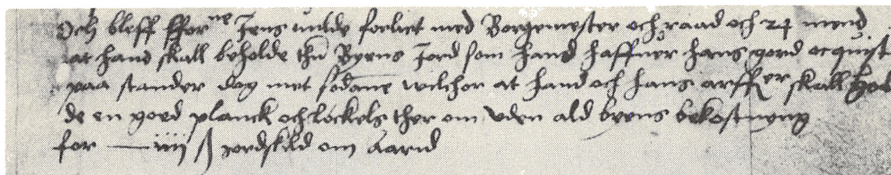 Och bleff ffor ne Jens wilde forlict med Borgemester och raad och 24 mend
at hand skall beholde thn Byens Jord som hand haffuer hans gord oc quist
paa stander dog met sodane wilchor at hand och hans arffuer skall hol
de en goed planck och lockels ther om vden ald byens bekostneng
for — iiij ß jordskild om aarid